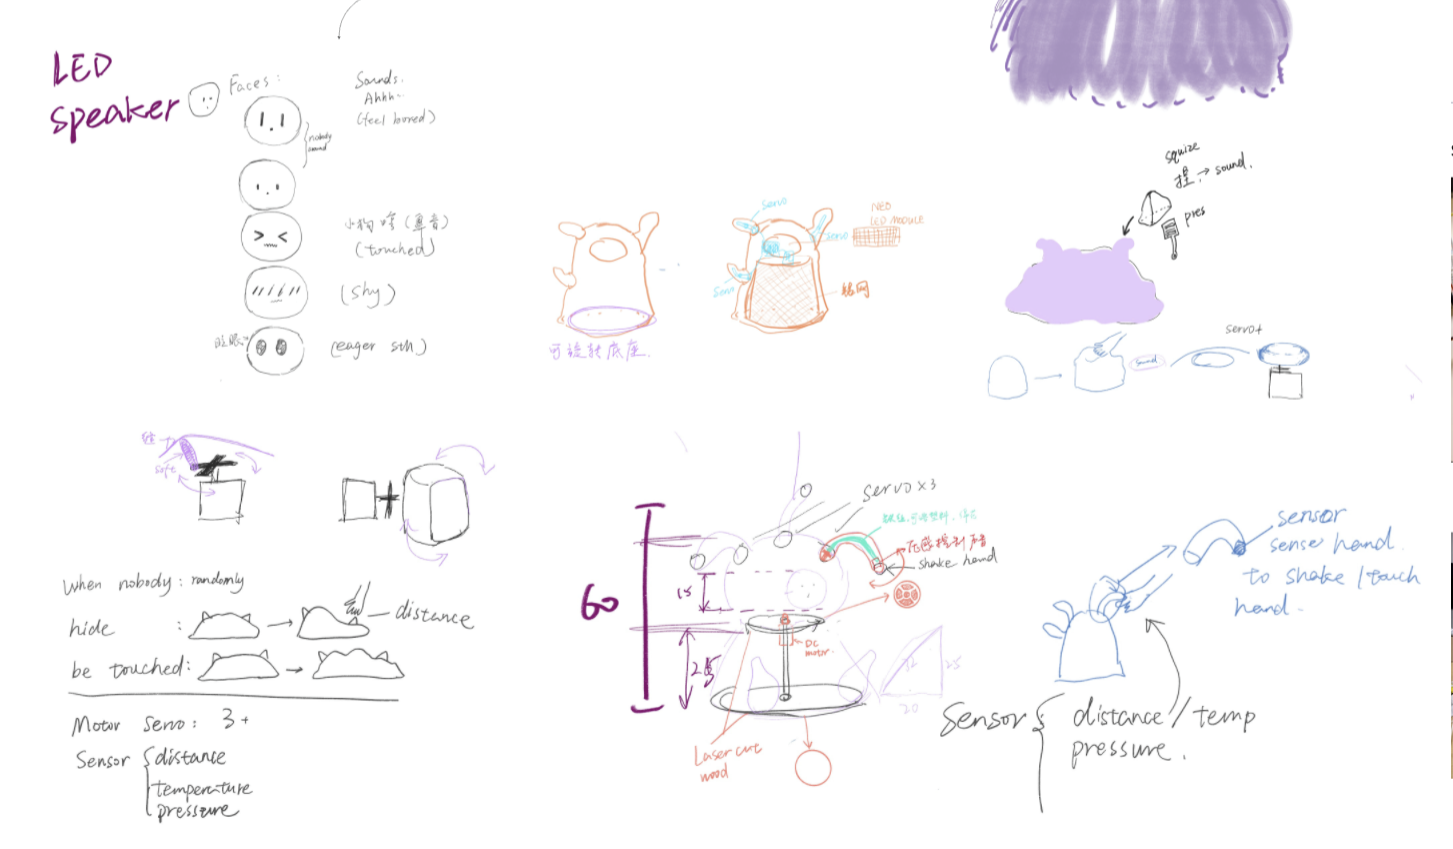 LED
speaker
Faces:
Sounds.
Ahhh~
(feel bored)
nobody
sound
(touched)
(shy)
(eager sth)
servo
servo
Servo
NEO
LED MODULE
铝网
可旋转底座.
squize
捏.→sound.
pres
sound
servo+
soft
when nobody: randomly
hide :
distance
be touched:
Motor servo: 3+
Sensor { distance
temperature
pressure
servo×3
shake hand
60
15
25
DC
motor.
Laser cut
wood
25
20
sensor
sense hand.
to shake / touch
hand.
Sensor { distance / temp
pressure.